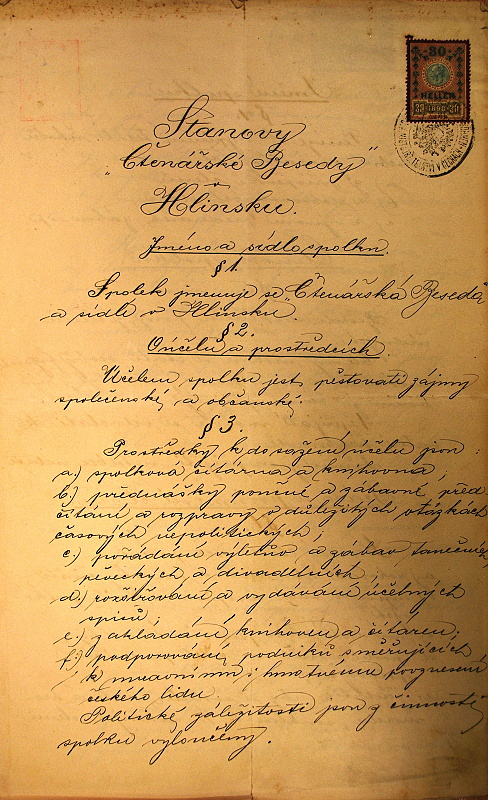 30
HELLER
1898
Stanovy
„Čtenářské Besedy“
v
Hlinsku.
Jméno a sídlo spolku.
§ 1.
Spolek jmenuje se „Čtenářská Beseda“
a sídlí v Hlinsku.
§ 2.
O účelu a prostředcích.
Účelem spolku jest pěstovati zájmy
společenské a občanské.
§ 3.
Prostředky k dosažení účelu jsou:
a.) spolková čítárna a knihovna;
b.) přednášky poučné a zábavné, před-
čítání a rozpravy o důležitých otázkách
časových nepolitických;
c.) pořádání výletův a zábav tanečních,
pěveckých a divadelních;
d.) rozšiřování a vydávání účelných
spisů;
e.) zakládání knihoven a čítáren;
f.) podporování podniků směřujících
k mravnímu i hmotnému povznesení
českého lidu.
Politické záležitosti jsou z činnosti
spolku vyloučeny.